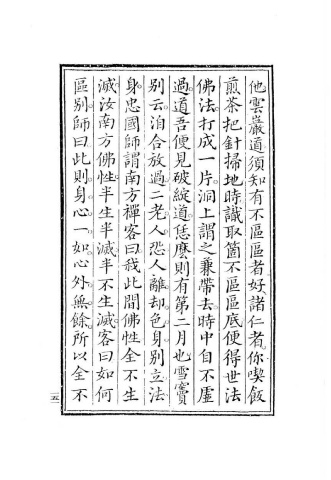 他雲巖道須知有不區區者好諸仁者你喫飯
煎茶把針掃地時識取箇不區區底便得世法
佛法打成一片洞上謂之兼帶去時中自不虛
過道吾便見破綻道恁麽則有第二月也雪竇
別云洎合放過二老人恐人離却色身別立法
身忠國師謂南方禪客曰我此間佛性全不生
滅汝南方佛性半生半滅半不生滅客曰如何
區別師曰此則身心一如心外無餘所以全不
五